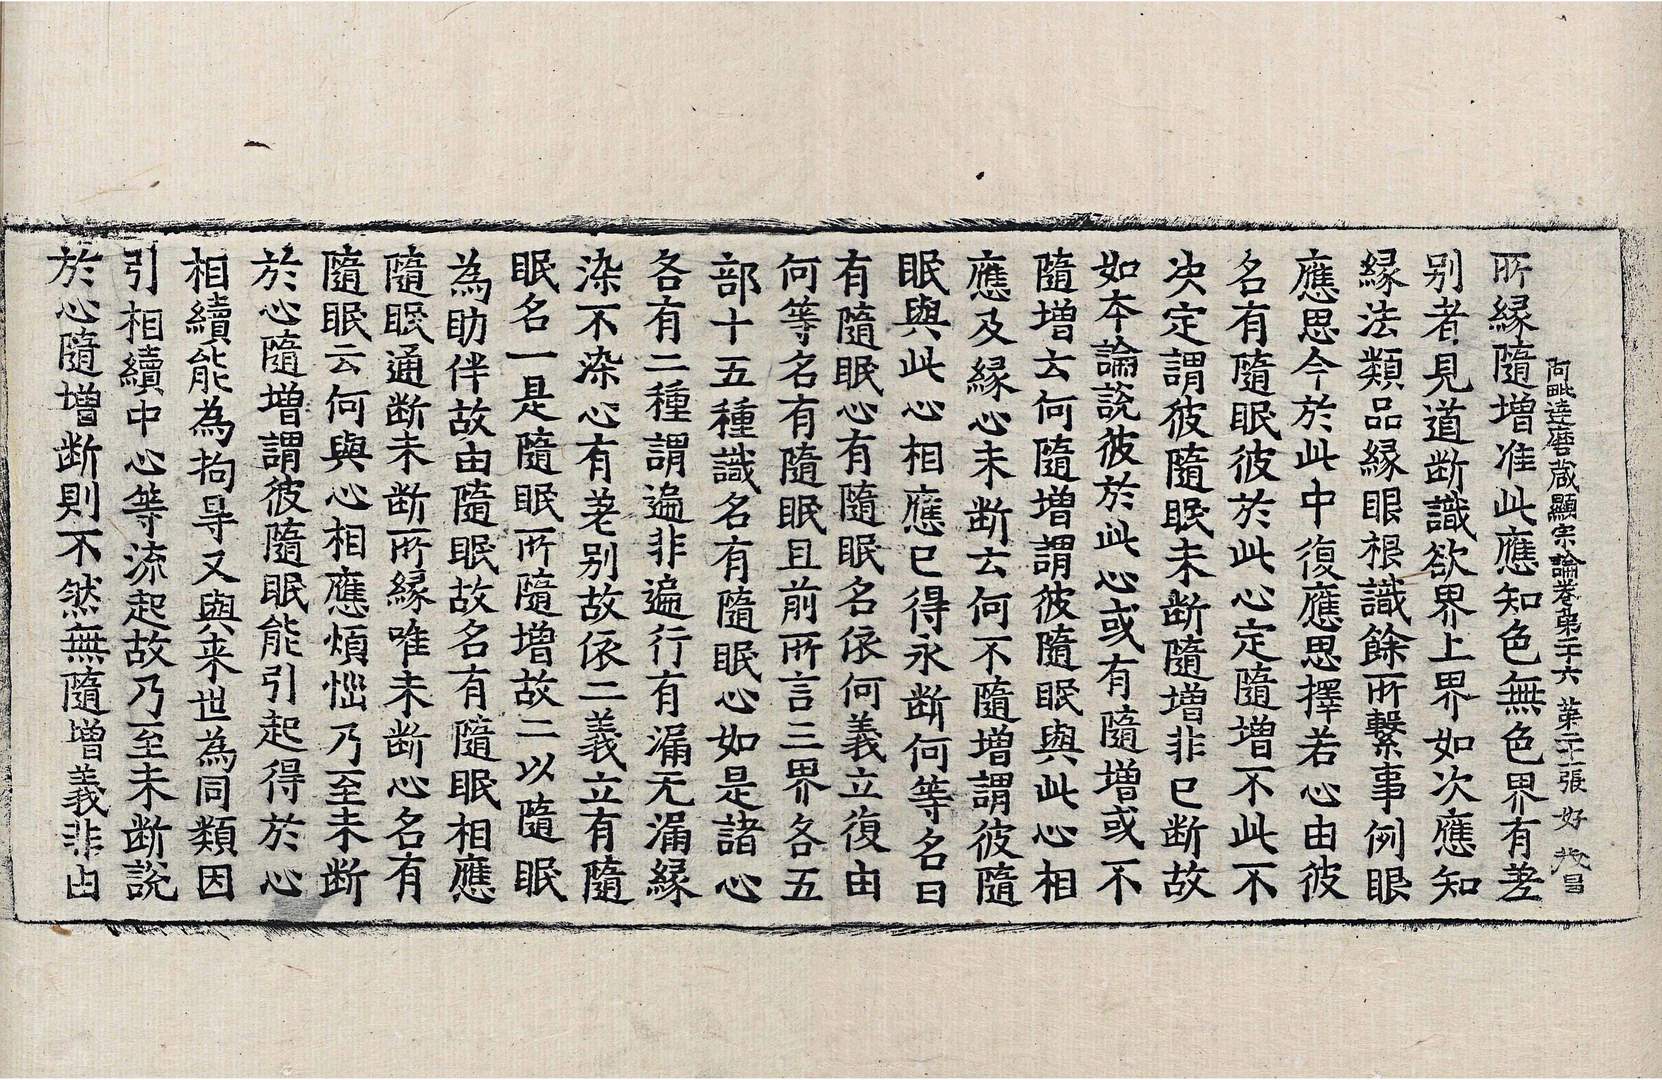 阿毗達磨藏顯宗論卷第二十六　第二十張　好
所緣隨增准此應知色無色界有差
别者見道断識欲界上界如次應知
緣法類品緣眼根識餘所繫事例眼
應思今於此中復應思擇若心由彼
名有隨眠彼於此心定隨增不此不
决定謂彼隨眠未断隨增非已断故
如本論說彼於此心或有隨增或不
隨增云何隨增謂彼隨眠與此心相
應及緣心未断云何不隨增謂彼隨
眠與此心相應已得永断何等名曰
有隨眠心有隨眠名依何義立復由
何等名有隨眠且前所言三界各五
部十五種識名有隨眠心如是諸心
各有二種謂遍非遍行有漏无漏緣
染不染心有差别故依二義立有隨
眠名一是隨眠所隨增故二以隨眠
為助伴故由隨眠故名有隨眠相應
隨眠通断未断所緣唯未断心名有
隨眠云何與心相應煩惱乃至未断
於心隨增謂彼隨眠能引起得於心
相續能為拘导又與来世為同類因
引相續中心等流起故乃至未断說
於心隨增断則不然無隨增義非由